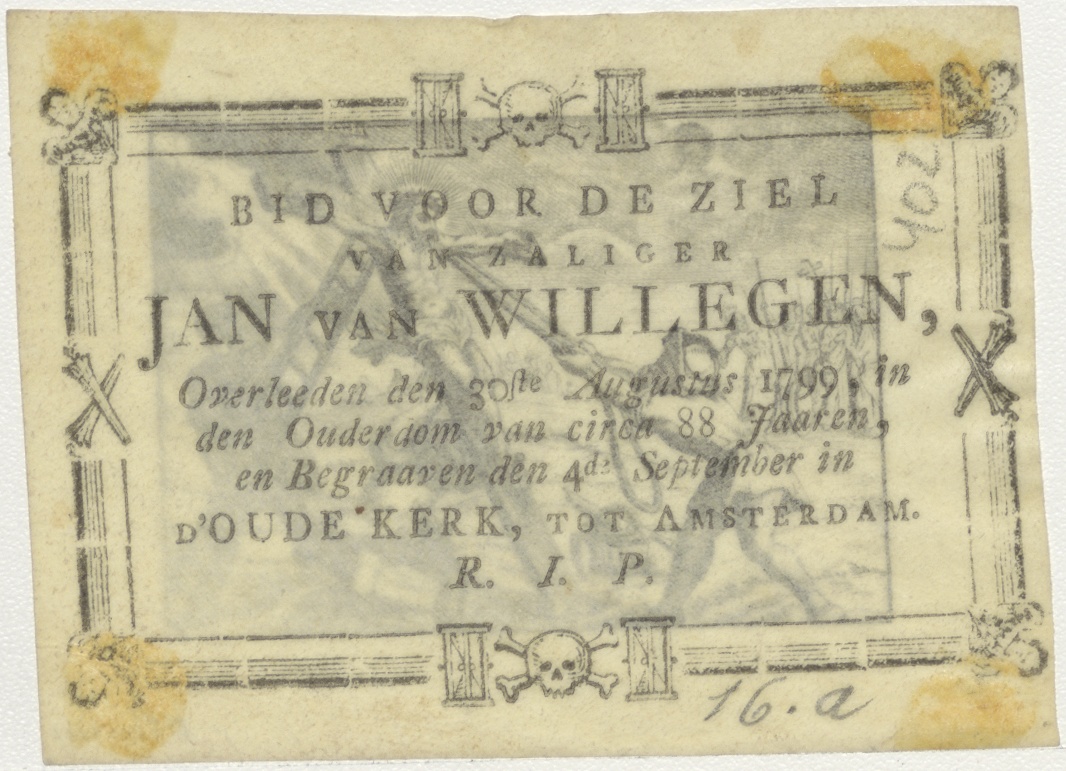 BID VOOR DE ZIEL
VAN ZALIGER
JAN VAN WILLEGEN,
Overleeden den 30ſte Augustus 1799, in
den Ouderdom van circa 88 Jaaren,
en Begraaven den 4de September in
D'OUDE KERK, TOT AMSTERDAM.
R. I. P.
402
16.a